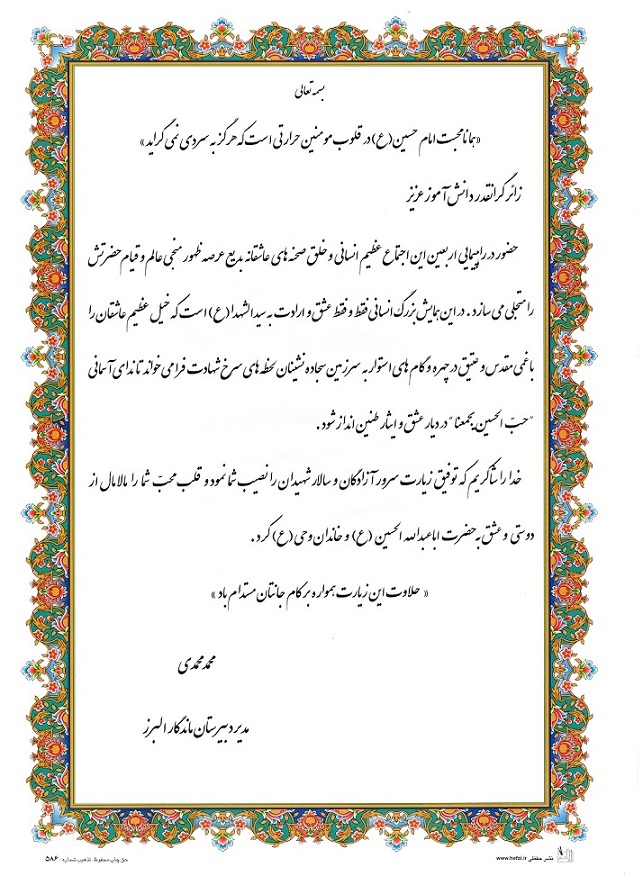 بسمه تعالی
«همانا محبت امام حسین (ع) در قلوب مومنین حرارتی است که هرگز به سردی نمی گراید»
زائر گرانقدر دانش آموز عزیز
حضور در راهپیمایی اربعین این اجتماع عظیم انسانی و خلق صحنه های عاشقانه بدیع عرصه ظهور منجی عالم و قیام حضرتش
را متجلی می سازد. در این همایش بزرگ انسانی فقط و فقط عشق و ارادت به سید الشهدا (ع) است که خیل عظیم عاشقان را
با غمی مقدس و عتیق در چهره و گام های استوار به سرزمین سجاده نشینان لحظه های سرخ شهادت فرا می خواند تا ندای آسمانی
"حبّ الحسین یجمعنا" در دیار عشق و ایثار طنین انداز شود.
خدا را شاکریم که توفیق زیارت سرور آزادگان و سالار شهیدان را نصیب شما نمود و قلب محبّ شما را مالامال از
دوستی و عشق به حضرت ابا عبدالله الحسین (ع) و خاندان وحی (ع) کرد.
« حلاوت این زیارت همواره بر کام جانتان مستدام باد »
محمد محمدی
مدیر دبیرستان ماندگار البرز
نشر حفظی www.hefzi.ir
حق چاپ محفوظ. تذهیب شماره: ۵۸۶